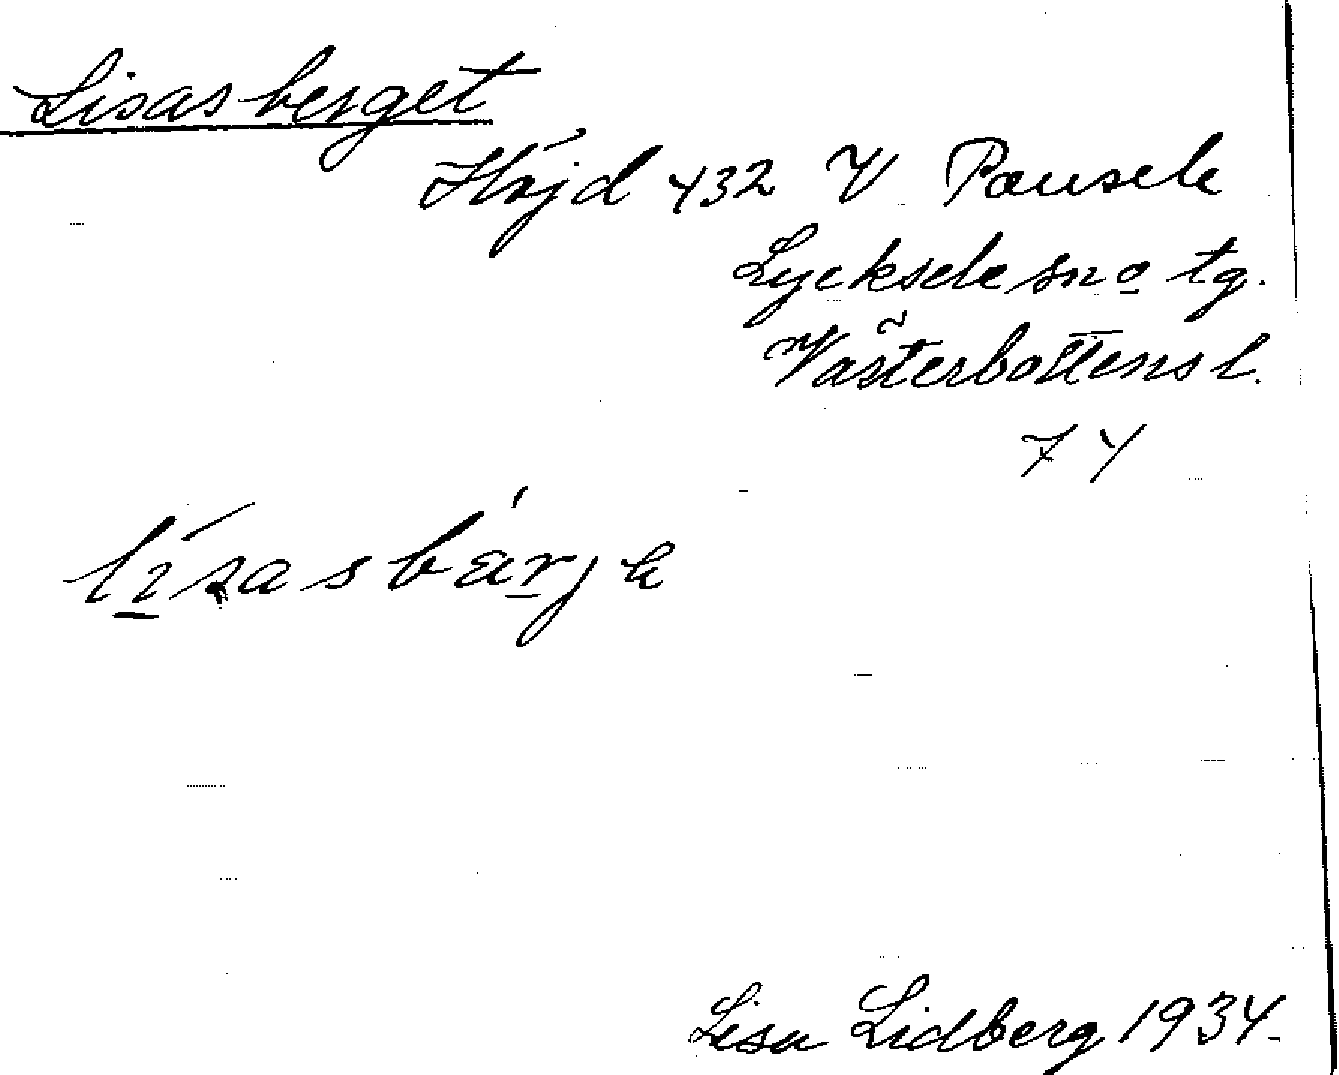 Lisasberget
Höjd 432 V Pausele
Lycksele sn o tg.
Västerbottens l.
74
lisasbärje
Lisa Lidberg 1934.